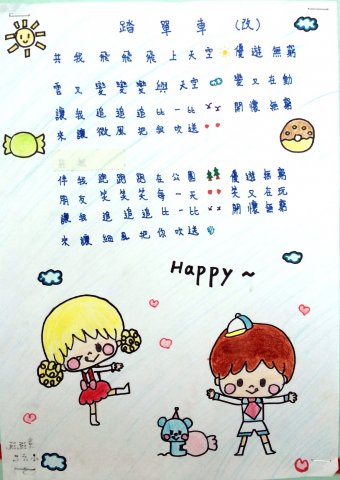 踏單車 (改)
共我飛飛飛飛上天空優遊無窮
雲又變變變與天空變又在動
讓我追追追比一比開懷無窮
來讓微風把我吹送
伴我跑跑跑在公園優遊無窮
朋友笑笑笑每一天笑又在玩
讓我追追追比一比開懷無窮
來讓細風把你吹送
Happy ~